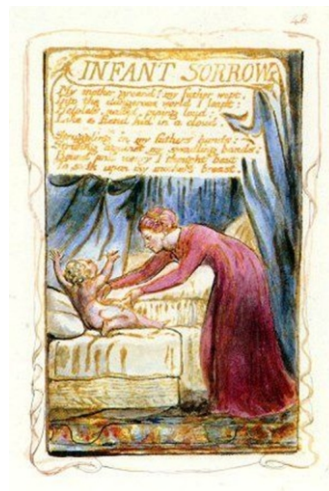 48
INFANT SORROW
My mother groand! my father wept.
Into the dangerous world I leapt:
Helpless, naked, piping loud:
Like a fiend hid in a cloud.
Struggling in my fathers hands:
Striving against my swadling bands:
Bound and weary I thought best
To sulk upon my mothers breast.